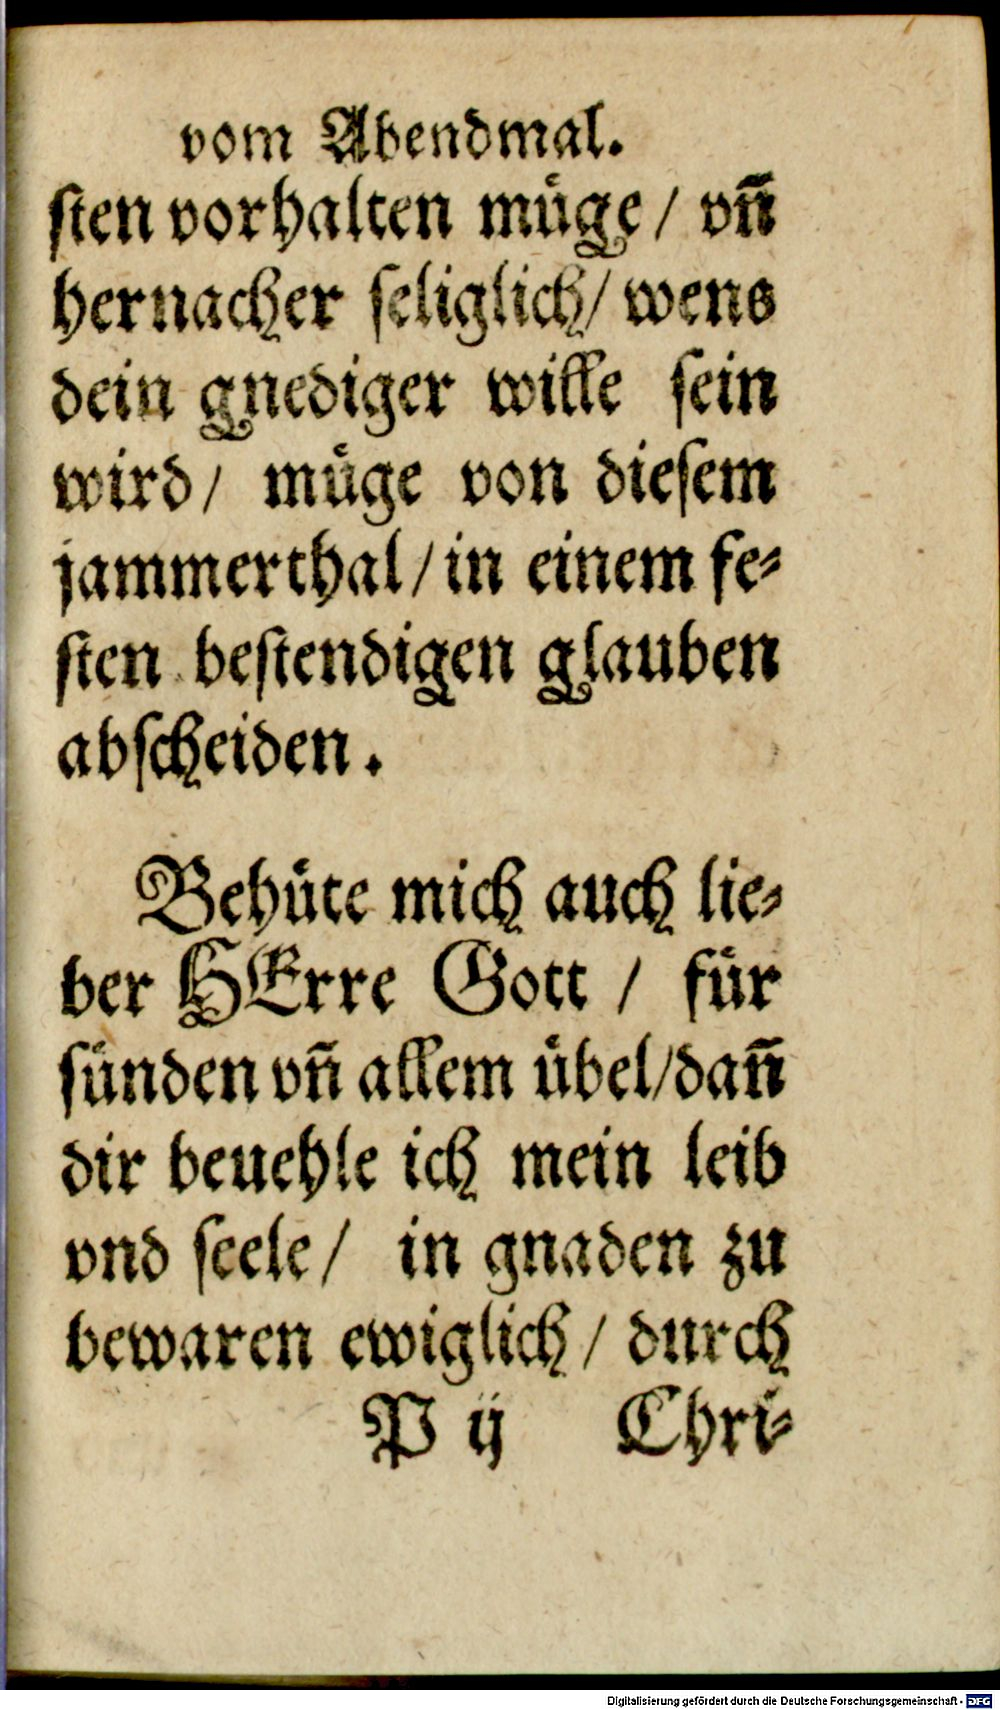 vom Abendmal.
ſten vorhalten muͤge / vñ
hernacher ſeliglich / wens
dein gnediger wille ſein
wird / muͤge von dieſem
jammerthal / in einem fe⸗
ſten beſtendigen glauben
abſcheiden.
Behuͤte mich auch lie⸗
ber HErre Gott / fuͤr
ſuͤnden vñ allem uͤbel / dañ
dir beuehle ich mein leib
vnd ſeele / in gnaden zu
bewaren ewiglich / durch
P ij Chri⸗
Digitalisierung gefördert durch die Deutsche Forschungsgemeinschaft - DFG